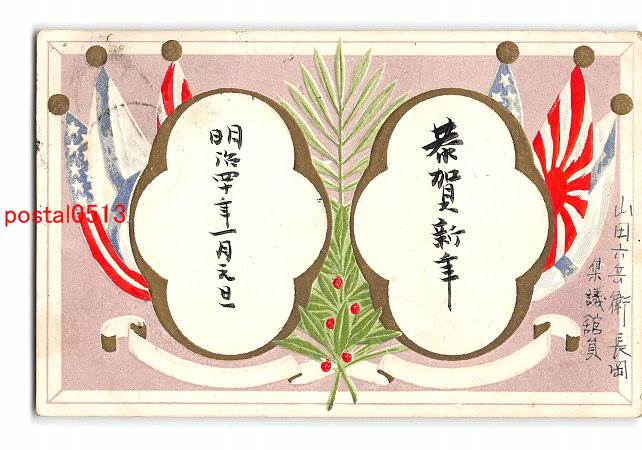 恭賀新年
明治四十年一月元旦
山田六兵衛 長岡
集議館員
postal0513